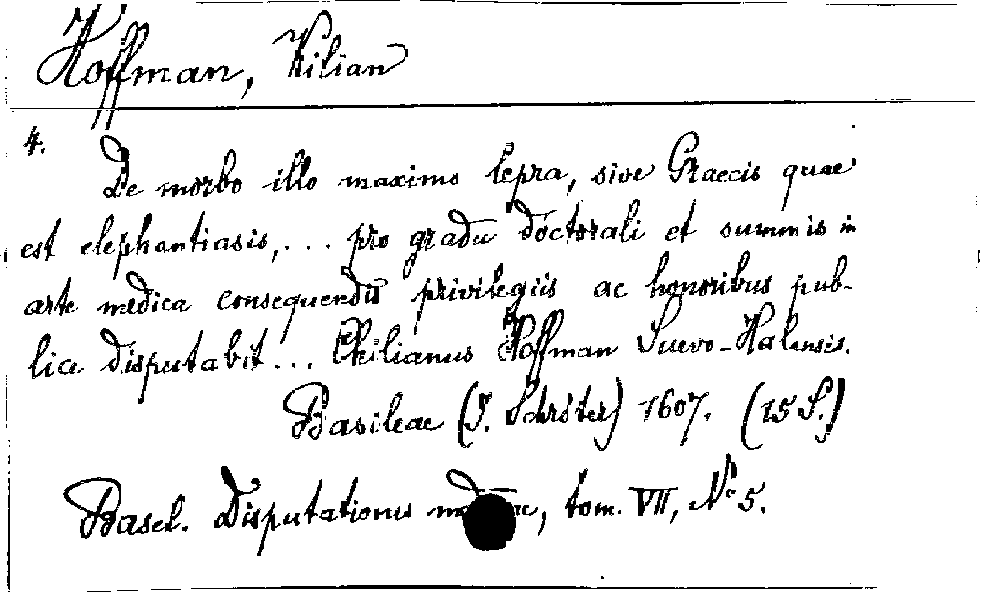 Hoffman, Kilian
4.
De morbo illo maximo lepra, sive Graecis quae
est elephantiasis, ... pro gradu doctorali et summis in
arte medica consequendis privilegiis ac honoribus pub-
lice disputabit ... Chilianus Hoffman Suevo-Halensis.
Basileae (J. Schröter) 1607. (15 S.)
Basel. Disputationes, tom. VII, No 5.